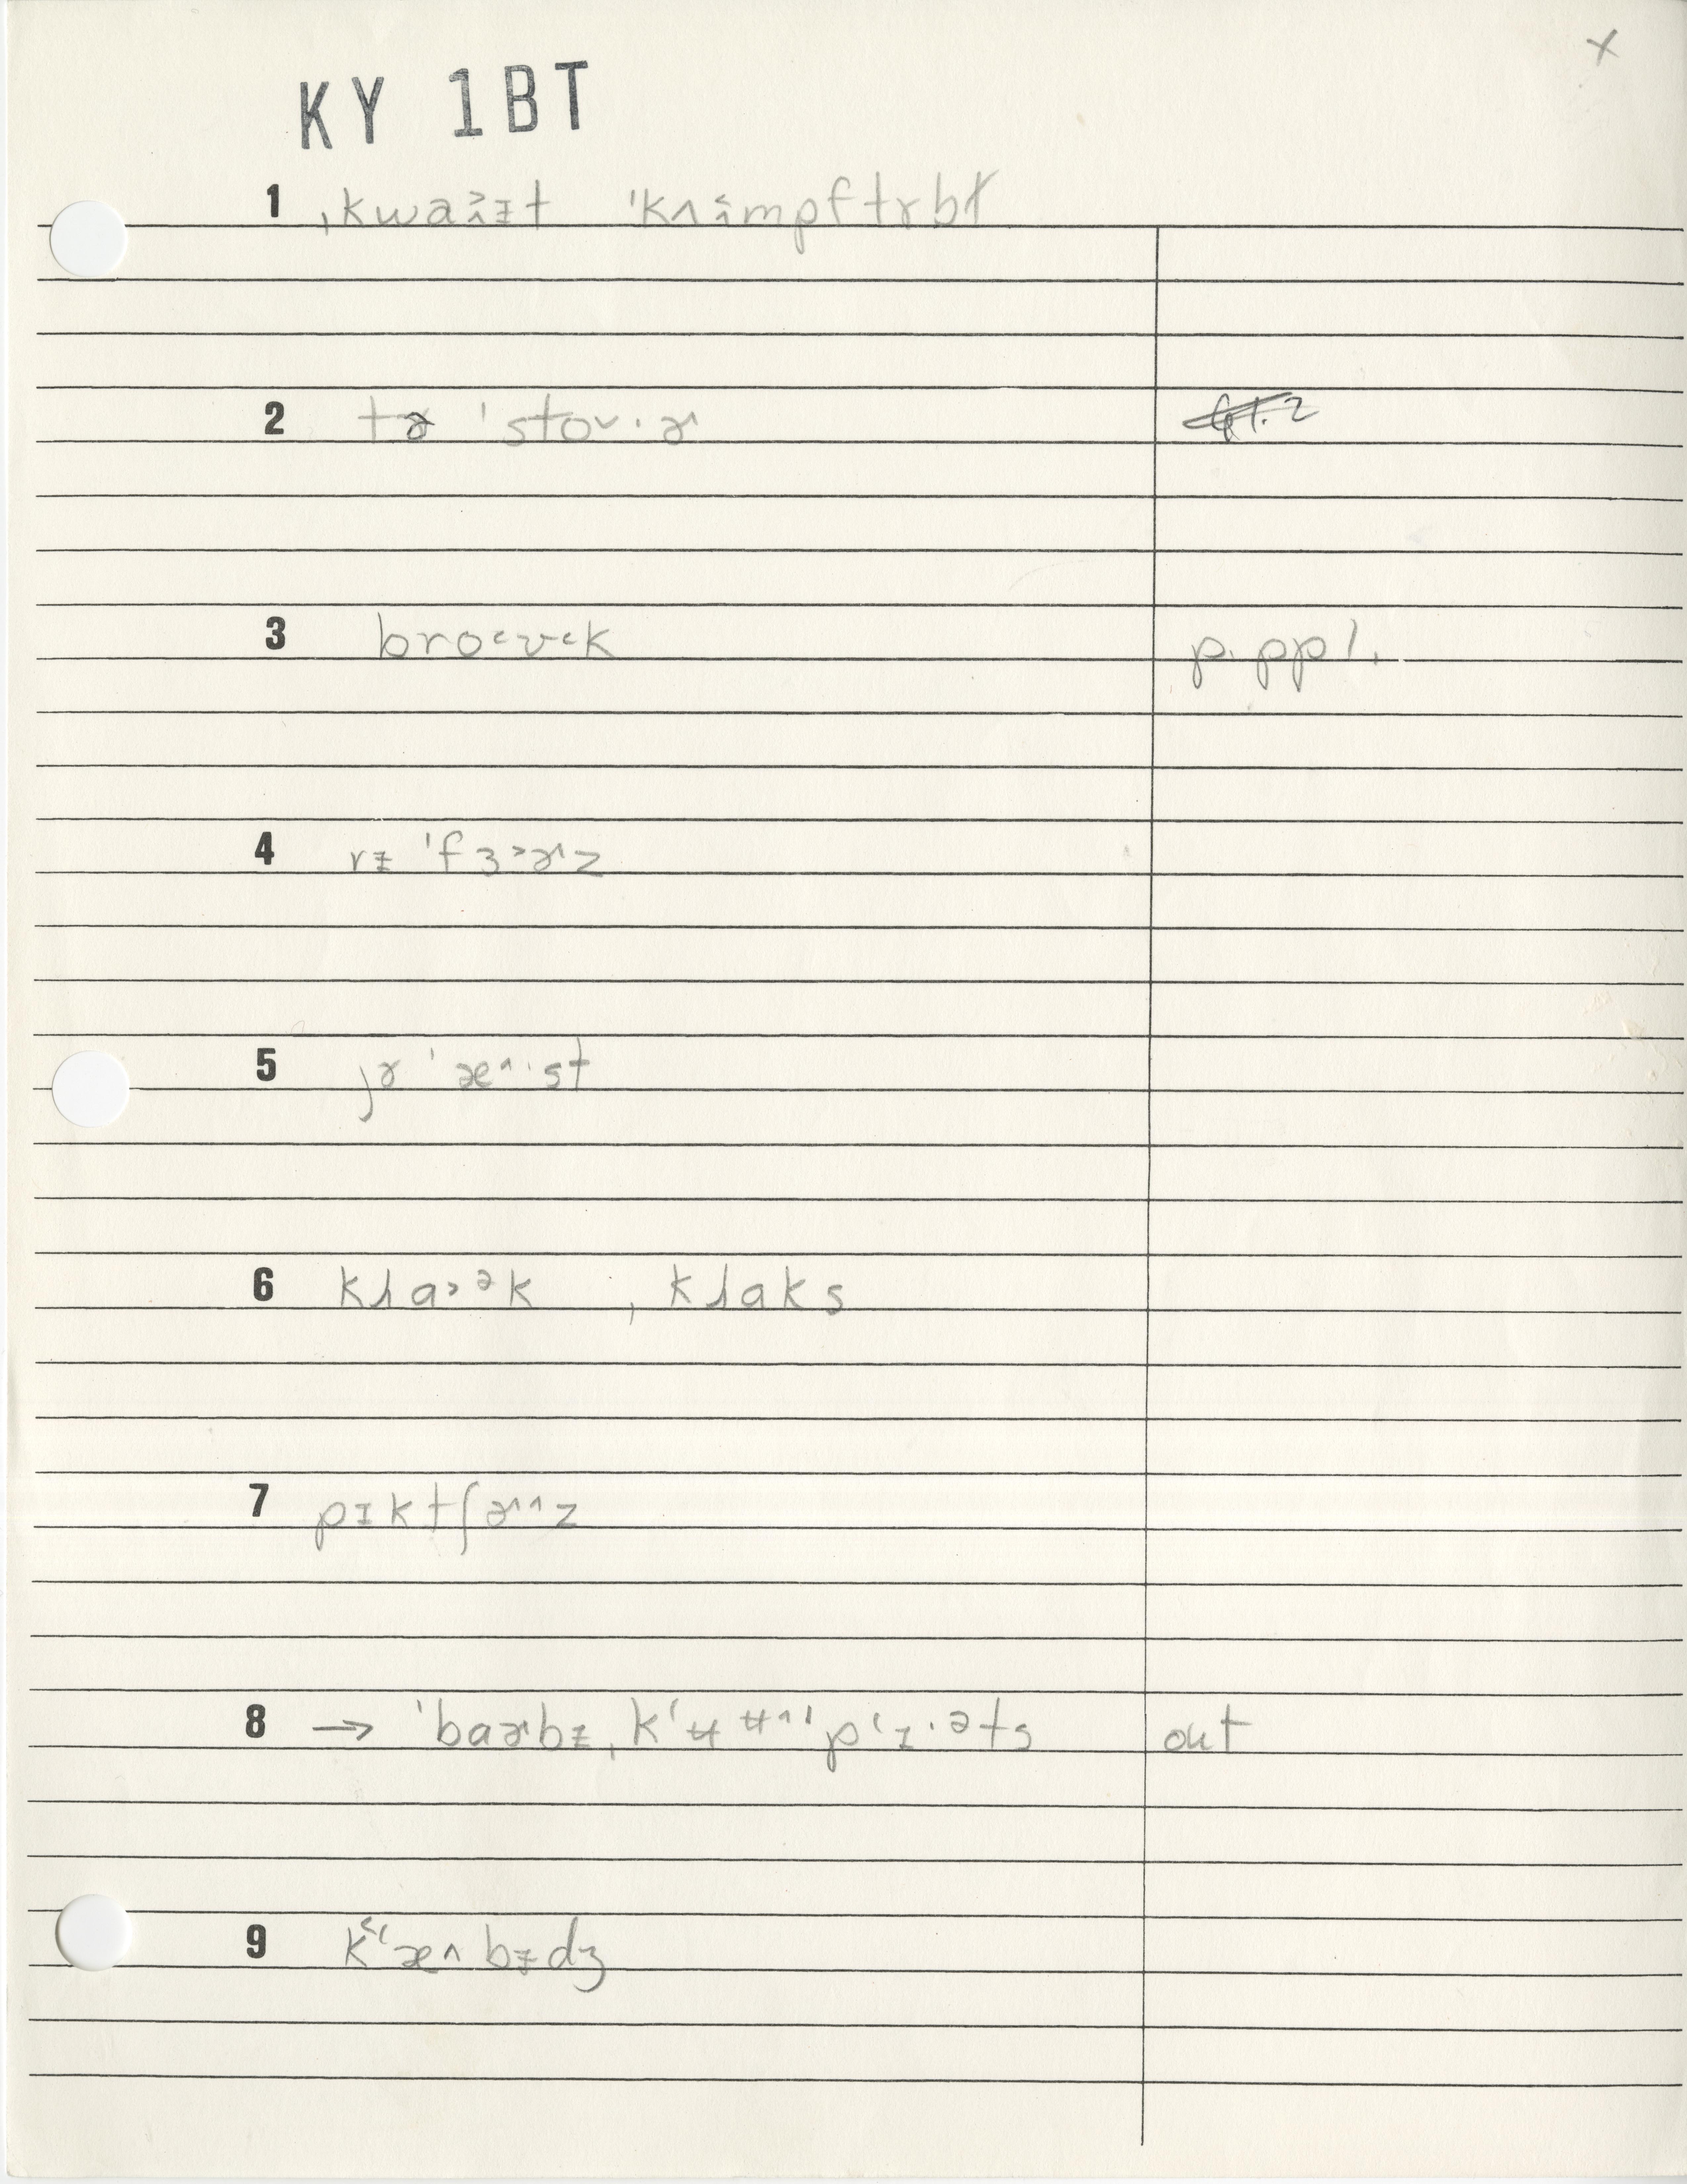 x
KY 1BT
1 ˌkwaɪ̂ᵻt ˈkʌɪ̂mpftɤbɫ
2 tə ˈstov·ɚ
3 bro˂ʊ˂k p. ppl.
4 rᵻ ˈfɜ˃ɚ^z
5 jɤ ˈæ^·st
6 klɑ˃ᵊk , klɑks
7 pɪktʃɚ^^z
8 → ˈbɑɚbᵻˌkʻʉʉ^ˈpʻɪ·ᵊts out
9 k˂ʻæ^bᵻdʒ